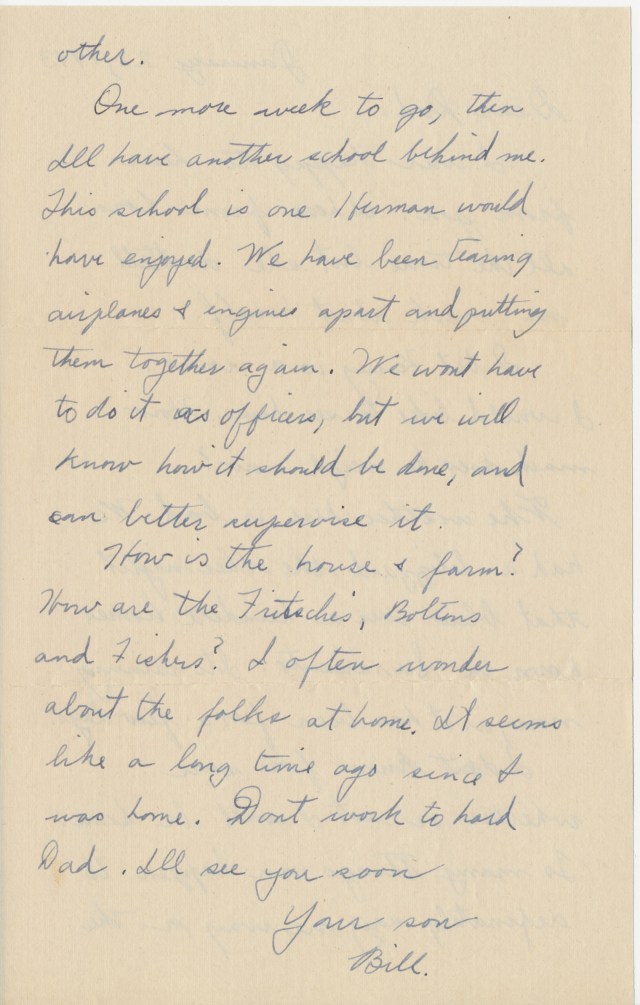 other.
One more week to go, then
I'll have another school behind me.
This school is one Herman would
have enjoyed. We have been tearing
airplanes & engines apart and putting
them together again. We wont have
to do it as officers, but we will
know how it should be done, and
can better supervise it.
How is the house & farm?
How are the Fritsche's, Boltons
and Fishers? I often wonder
about the folks at home. It seems
like a long time ago since I
was home. Dont work to hard
Dad. I'll see you soon
Your son
Bill.